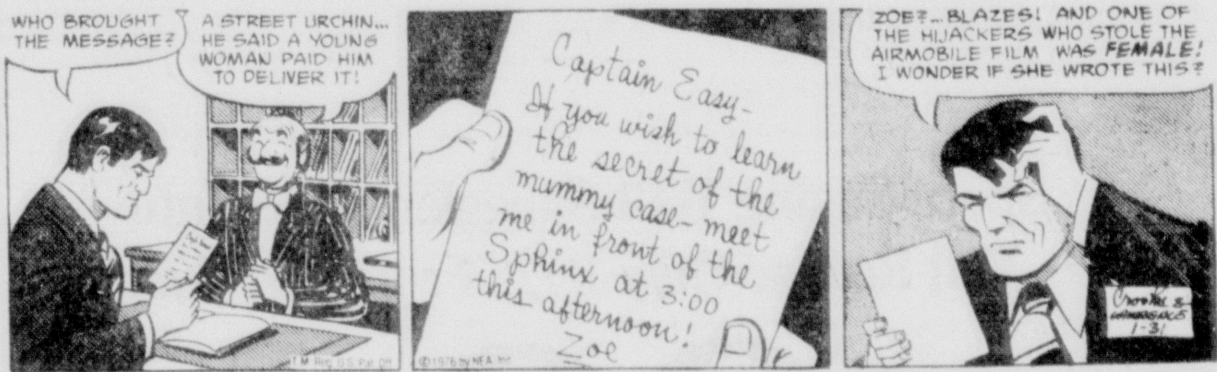 WHO BROUGHT
THE MESSAGE?
A STREET URCHIN...
HE SAID A YOUNG
WOMAN PAID HIM
TO DELIVER IT!
T.M. Reg. U.S. Pat. Off.
Captain Easy-
If you wish to learn
the secret of the
mummy case-meet
me in front of the
Sphinx at 3:00
this afternoon!
Zoe
© 1976 by NEA, Inc.
ZOE?...BLAZES! AND ONE OF
THE HIJACKERS WHO STOLE THE
AIRMOBILE FILM WAS FEMALE!
I WONDER IF SHE WROTE THIS?
Crooks &
LAWRENCE
1-31